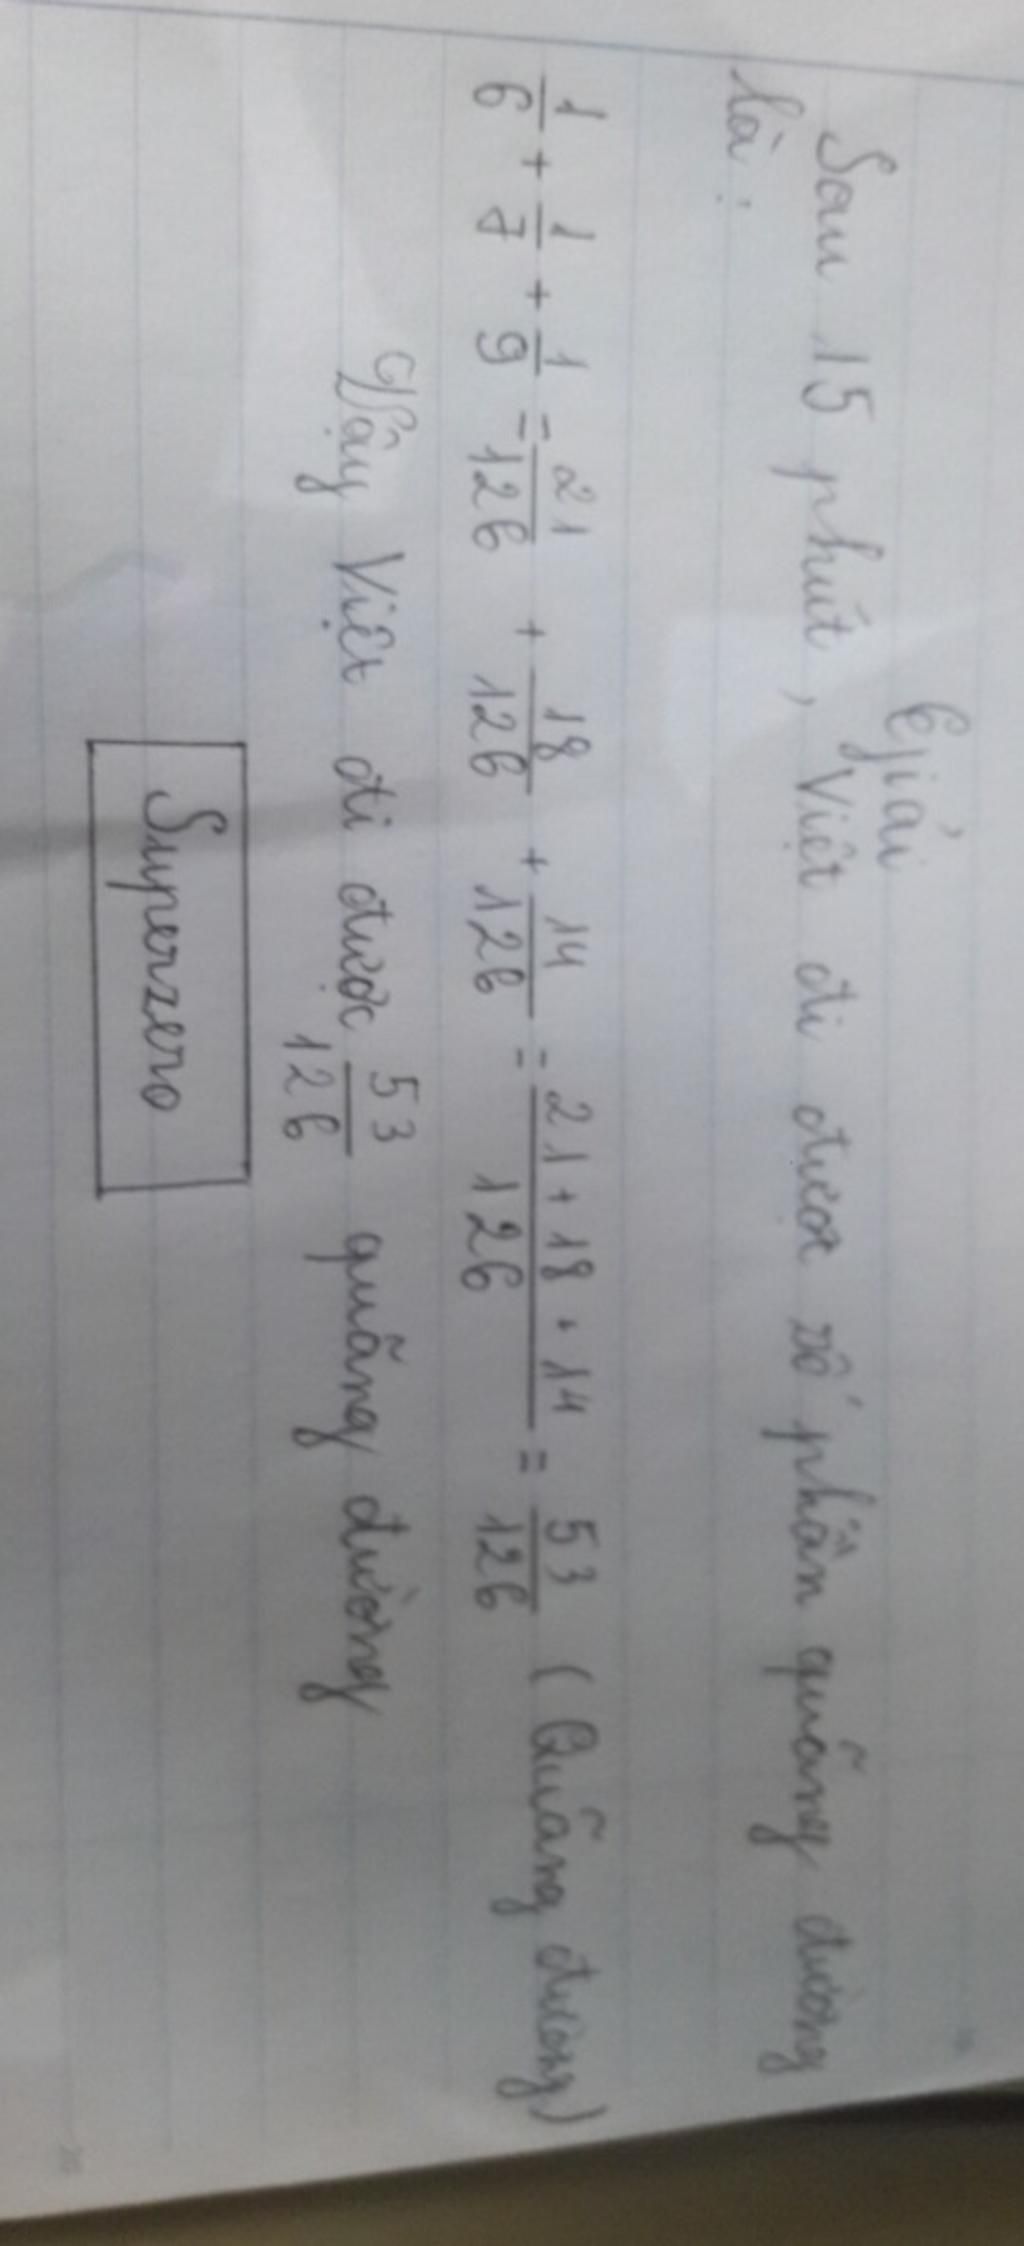 Giải
Sau 15 phút, Việt đi được số phần quãng đường
là:
1/6 + 1/7 + 1/9 = 21/126 + 18/126 + 14/126 = 21+18+14/126 = 53/126 (Quãng đường)
Vậy Việt đi được 53/126 quãng đường
Superzero